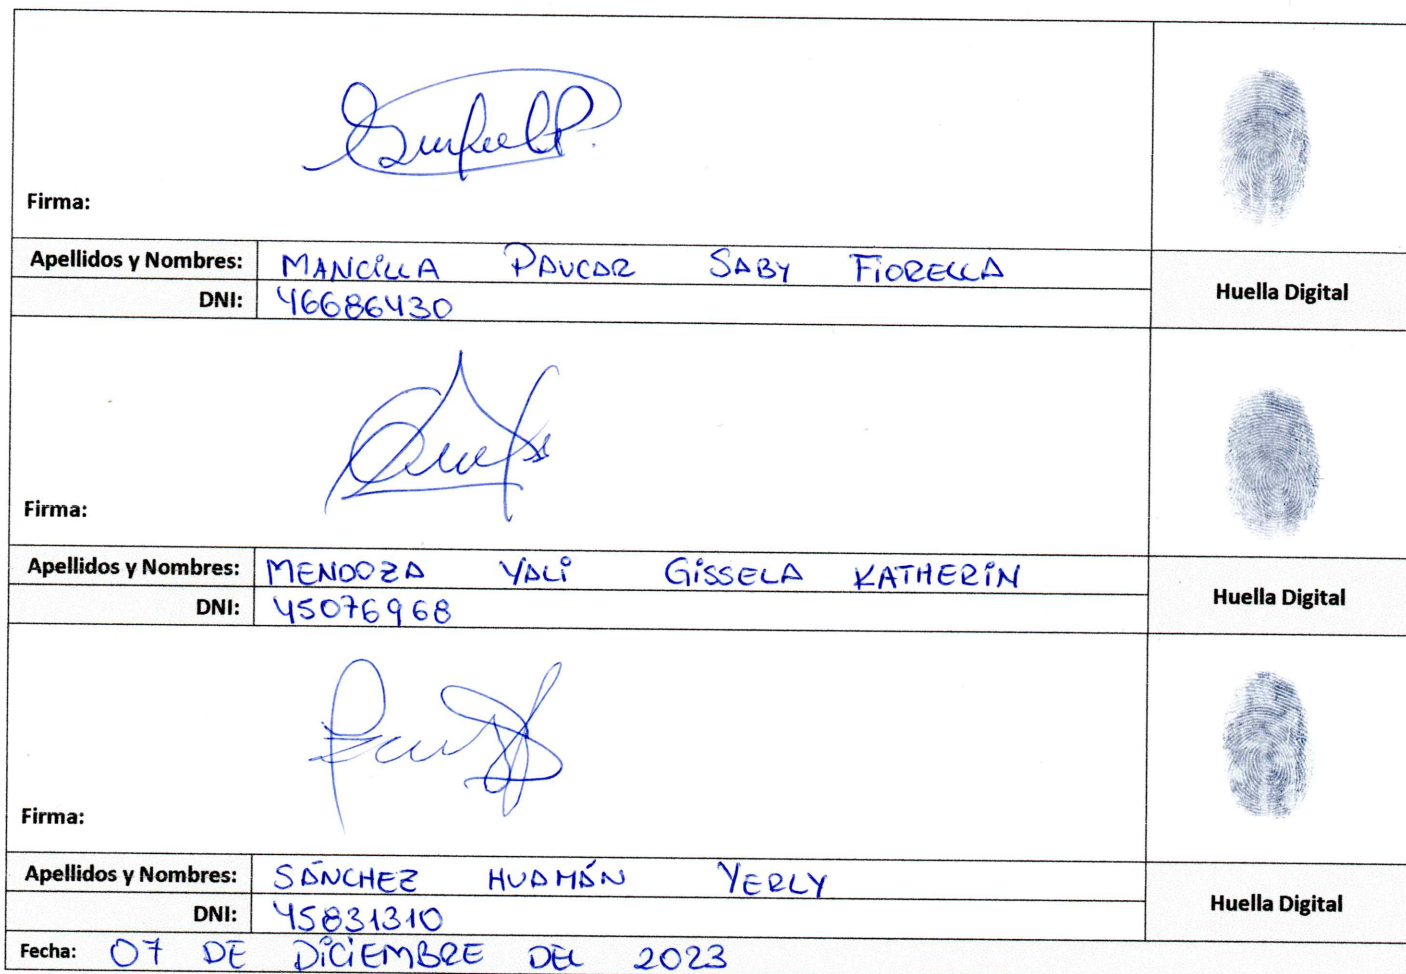 Firma:
Apellidos y Nombres: MANCILLA PAUCAR SABY FIORELLA
DNI: 46686430
Huella Digital
Firma:
Apellidos y Nombres: MENDOZA YALI GISSELA KATHERIN
DNI: 45076968
Huella Digital
Firma:
Apellidos y Nombres: SÁNCHEZ HUAMÁN YERLY
DNI: 45831310
Huella Digital
Fecha: 07 DE DICIEMBRE DEL 2023